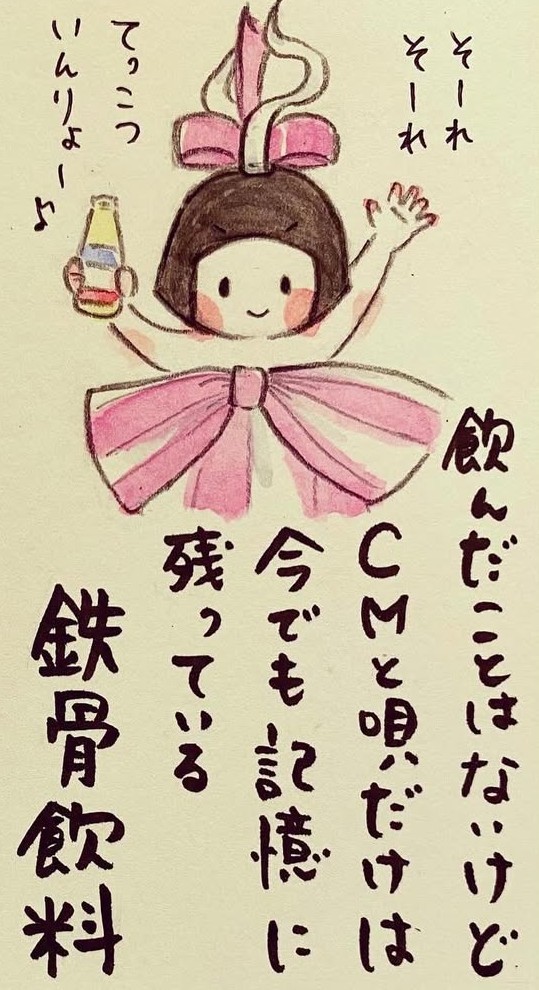 そーれ
そーれ
てっこつ
いんりょー♪
飲んだことはないけど
CMと唄だけは
今でも記憶に
残っている
鉄骨飲料